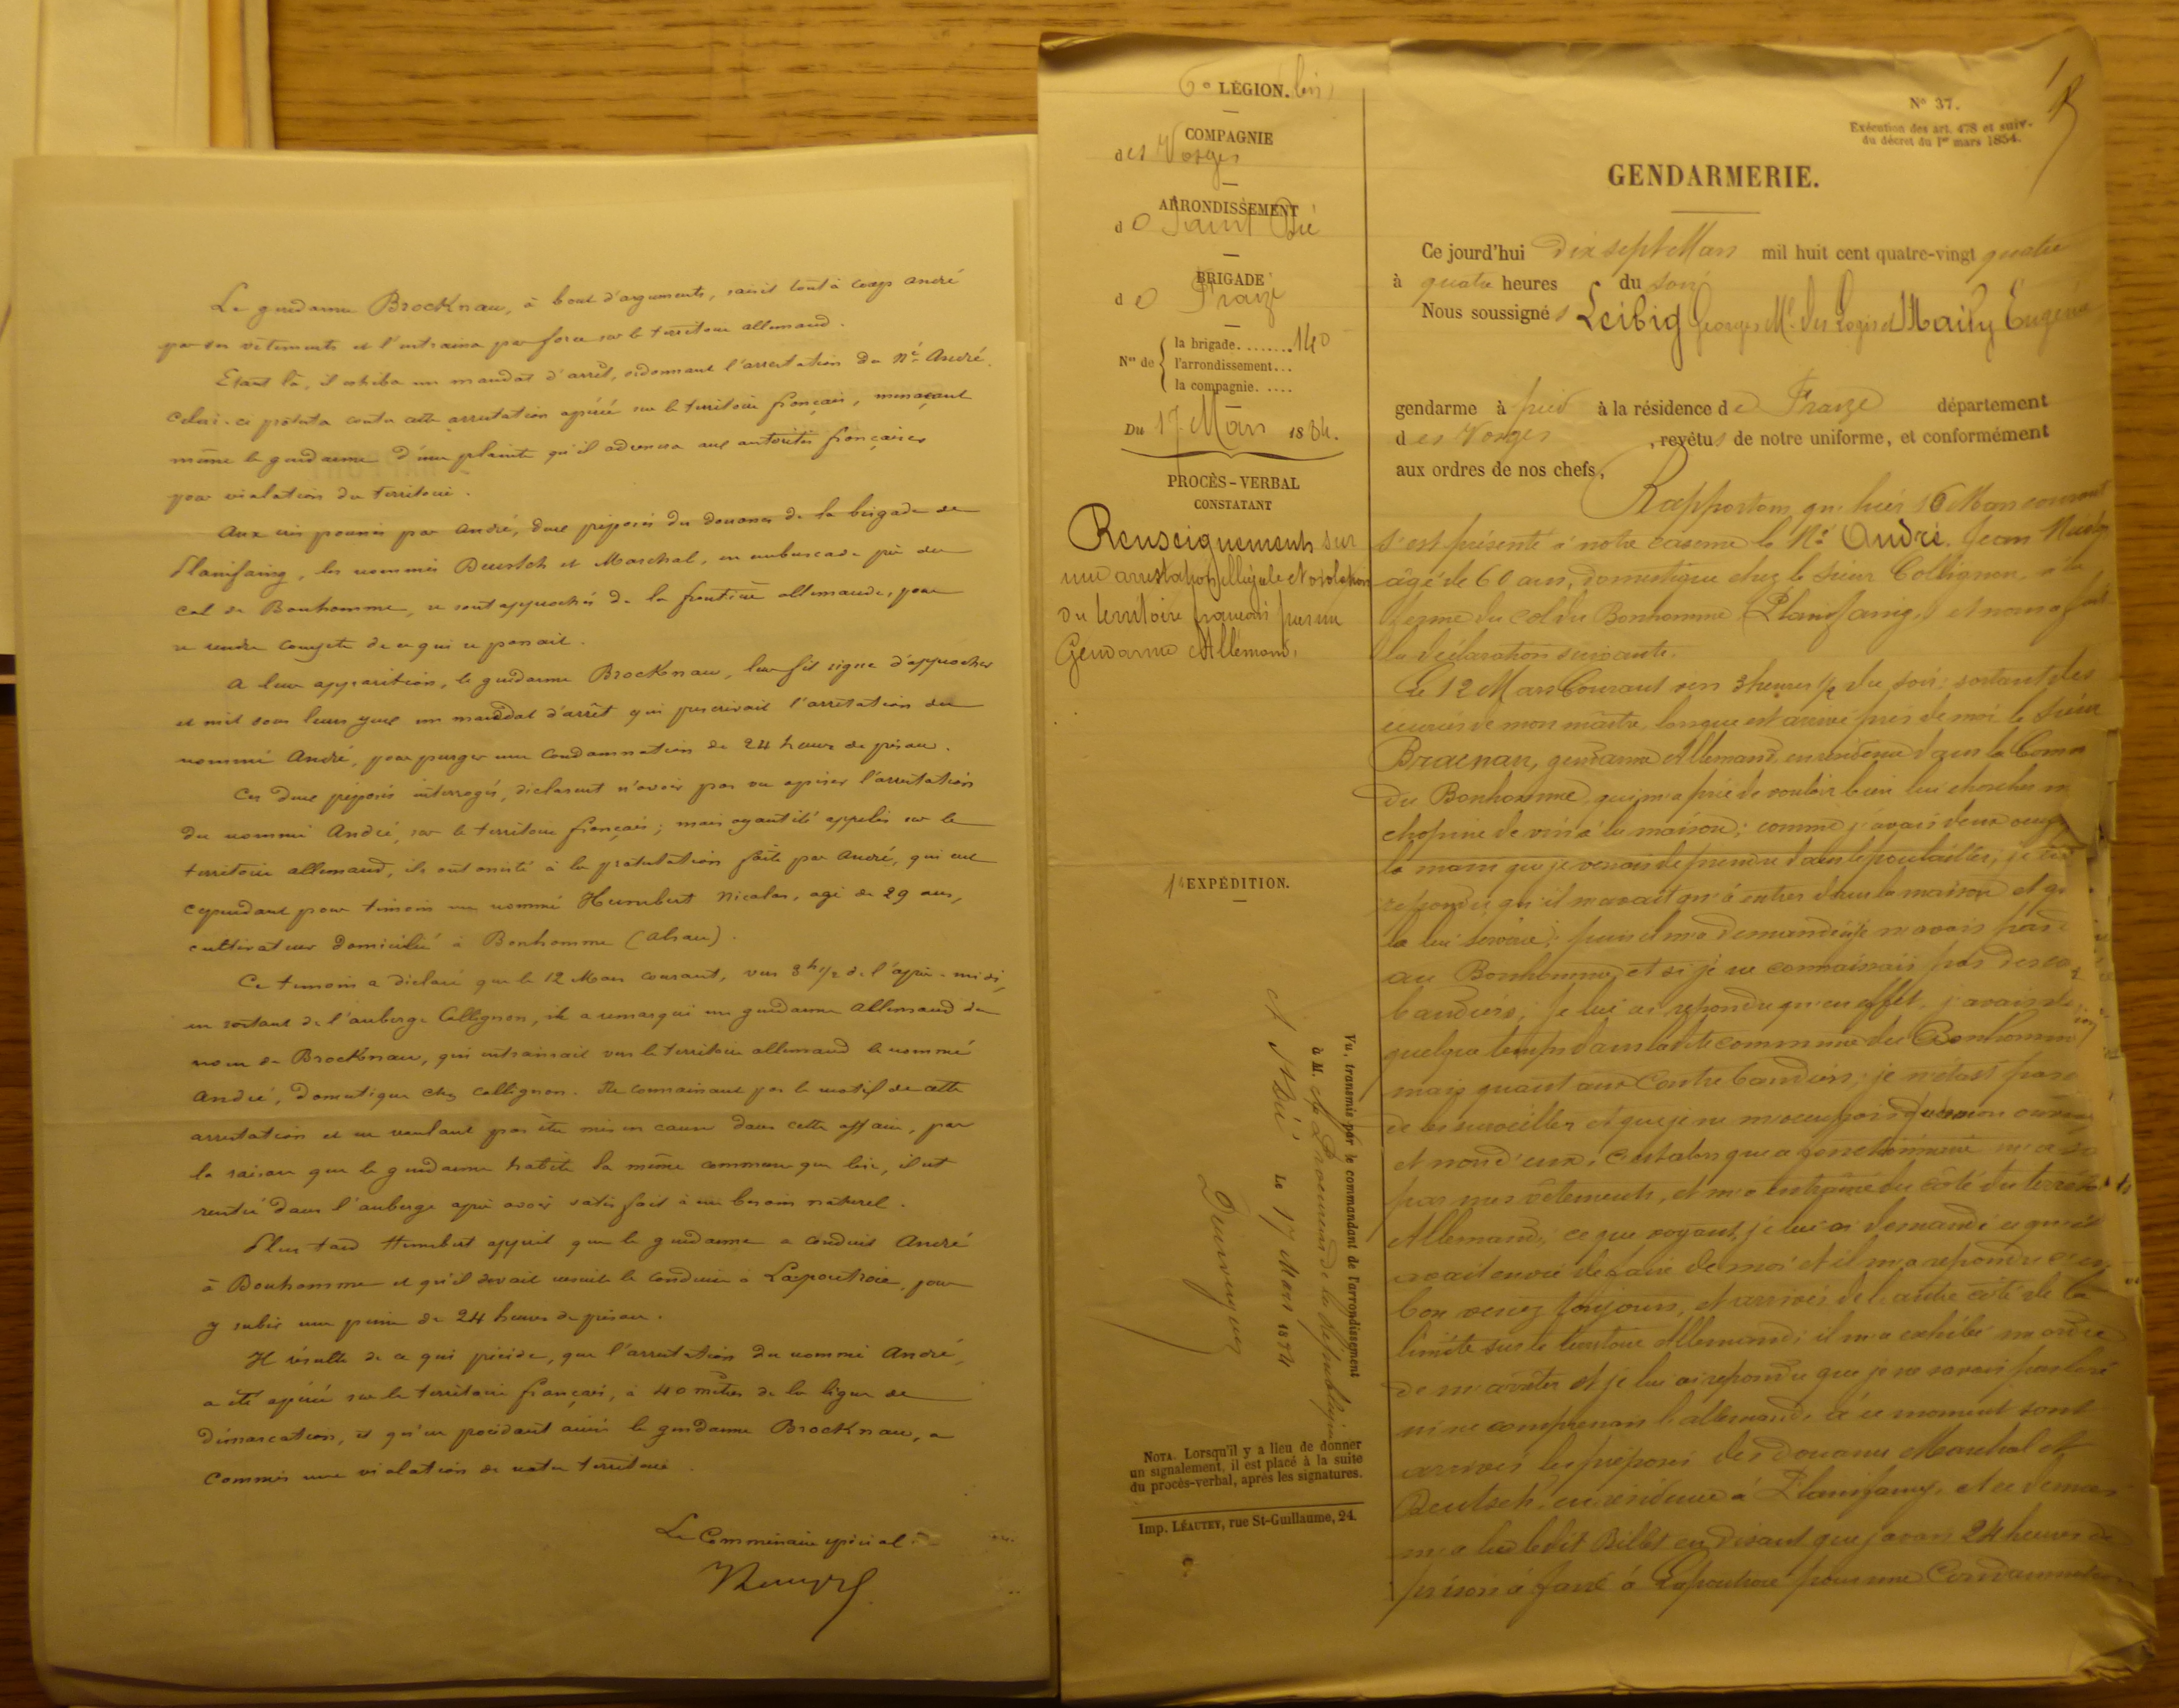 Le gendarme Brocknau, à bout d'arguments, saisit tout à coup André
par ses vêtements et l'entraina par force sur le territoire allemand.
Etant là, il exhiba un mandat d'arrêt, ordonnant l'arrestation du né André.
Celui-ci protesta contre cette arrestation opérée sur le territoire français, menaçant
même le gendarme d'une plainte qu'il adressera aux autorités françaises
pour violation du territoire.
Aux cris poussés par André, deux préposés des douanes de la brigade de
Plainfaing, les nommés Deustch et Marchal, en embuscade près du
col du Bonhomme, se sont approchés de la frontière allemande, pour
se rendre compte de ce qui se passait.
A leur apparition, le gendarme Brocknau, leur fit signe d'approcher
et mit sous leurs yeux un mandat d'arrêt qui prescrivait l'arrestation du
nommé André, pour purger une condamnation de 24 heures de prison.
Ces deux préposés interrogés, déclarent n'avoir pas vu opérer l'arrestation
du nommé André, sur le territoire français; mais ayant été appelés sur le
territoire allemand, ils ont assisté à la protestation faite par André, qui eut
cependant pour témoin un nommé Humbert Nicolas, agé de 29 ans,
cultivateur domicilié à Bonhomme (Alsace).
Ce témoin a déclaré que le 12 Mars courant, vers 3h 1/2 de l'après-midi,
en sortant de l'auberge Collignon, il a remarqué un gendarme allemand du
nom de Brocknau, qui entrainait vers le territoire allemand le nommé
André, domestique chez Collignon. Ne connaissant pas le motif de cette
arrestation et ne voulant pas être mis en cause dans cette affaire, par
la raison que le gendarme habite la même commune que lui, il est
rentré dans l'auberge après avoir satisfait à un besoin naturel.
Plus tard Humbert apprit que le gendarme a conduit André
à Bonhomme et qu'il devait ensuite le conduire à Lapoutroie, pour
y subir une peine de 24 heures de prison.
Il résulte de ce qui précède, que l'arrestation du nommé André,
a été opérée sur le territoire français, à 40 mètres de la ligne de
démarcation, et qu'en procédant ainsi le gendarme Brocknau, a
commis une violation de notre territoire.
Le Commissaire spécial
6e LÉGION. bis
COMPAGNIE
des Vosges
ARRONDISSEMENT
de Saint Dié
BRIGADE
de Fraize
Nos de { la brigade........140
l'arrondissement...
la compagnie.....
Du 17 Mars 1884.
PROCÈS-VERBAL
CONSTATANT
Renseignements sur
une arrestation illégale et violation
du territoire français par un
Gendarme Allemand.
1e EXPÉDITION.
Vu, transmis par le commandant de l'arrondissement
à M. le Procureur de la République
A St Dié Le 17 Mars 1884
NOTA. Lorsqu'il y a lieu de donner
un signalement, il est placé à la suite
du procès-verbal, après les signatures.
Imp. LÉAUTEY, rue St-Guillaume, 24.
N° 37.
Exécution des art. 478 et suiv.
du décret du 1er mars 1854.
GENDARMERIE.
Ce jourd'hui dix sept Mars mil huit cent quatre-vingt quatre
à quatre heures du soir
Nous soussignés Leibig Georges Mal des Logis et Mailly Eugène
gendarme à pied à la résidence de Fraize département
des Vosges, revêtus de notre uniforme, et conformément
aux ordres de nos chefs,
Rapportons qu'hier 16 Mars courant
s'est présenté à notre caserne le Né André Jean
âgé de 60 ans, domestique chez le sieur Collignon, à la
ferme du col du Bonhomme (Plainfaing) et nous a fait
la déclaration suivante.
Le 12 Mars Courant vers 3 heures 1/2 du soir: sortant des
écuries de mon maître, lorsque est arrivé près de moi le sieur
Bracnar, gendarme Allemand, en résidence dans la Comm
du Bonhomme, qui m'a prié de vouloir bien lui chercher
chopine de vin à la maison; comme j'avais deux oeufs
la main que je venais de prendre dans le poulailler, je
répondis qu'il n'avait qu'à entrer dans la maison et
la lui servirai; puis il m'a demandé si je n'avais pas
au Bonhomme, et si je ne connaissais pas des
bandiers; je lui ai répondu qu'en effet, j'avais
quelque temps dans la dite commune du Bonhomme
mais quant aux Contrebandiers, je n'étais pas
de les surveiller et que je ne m'occupais que de mon
et non d'eux; c'est alors que ce fonctionnaire m'a
par mes vêtements, et m'a entraîné du côté du territoire
Allemand; ce que voyant, je lui ai demandé ce qu'il
avait envie de faire de moi et il m'a répondu
bon venez toujours, et arrivés de l'autre côté de la
limite sur le territoire Allemand; il m'a exhibé un ordre
de m'arrêter et je lui ai répondu que je ne savais pas lire
ni ne comprenais l'allemand, à ce moment sont
arrivés les préposés des Douanes Marchal et
Deutsch, en résidence à Plainfaing, et ce dernier
m'a lu le dit Billet en disant que j'avais 24 heures de
prison à faire à Lapoutroie pour une Condamnation